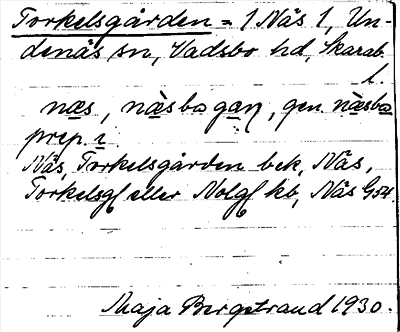 Torkelsgården = 1 Näs 1, Un-
denäs sn, Vadsbo hd, Skarab.
l.
næs, næ̀sbogan, gen. næ̀sba
prep. i
Näs, Torkelsgården bek, Näs,
Torkelsg eller Nolg kb, Näs G54.
Maja Bergstrand 1930.